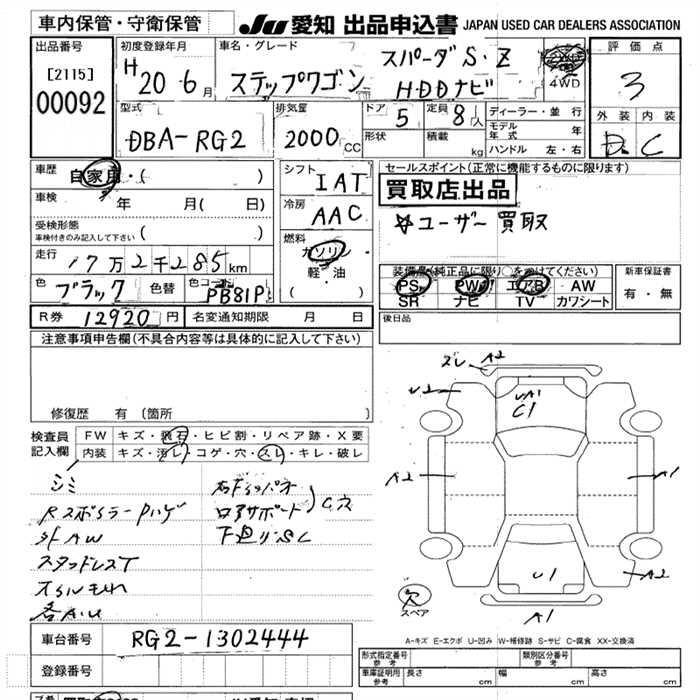 車内保管・守衛保管
JU 愛知 出品申込書 JAPAN USED CAR DEALERS ASSOCIATION
出品番号
[2115]
00092
初度登録年月
H 20 6月
車名・グレード
ステップワゴン
スパーダS・Z
HDDナビ
4WD
評価点
3
外装 内装
D C
型式
DBA-RG2
排気量
2000CC
ドア
5
形状
定員
8人
積載
kg
ディーラー・並行
モデル年式 年
ハンドル 左・右
車歴
自家用・( )
車検 年 月( 日)
受検形態
車検付きのみ記入して下さい ( )
走行
17万2千285km
色
ブラック
色替
色コード
PB81P
R券 12920円
名変通知期限 月 日
シフト
IAT
冷房
AAC
燃料
ガソリン
軽・油
( )
セールスポイント(正常に機能するものに限ります)
買取店出品
☆ユーザー買取
装備品(純正品に限り○をつけてください)
PS PW エアB AW
SR ナビ TV カワシート
新車保証書
有・無
後日品
注意事項申告欄(不具合内容等は具体的に記入して下さい)
修復歴 有 (箇所
検査員
記入欄
FW キズ・飛石・ヒビ割・リペア跡・X要
内装 キズ・汚レ・コゲ・穴・スレ・キレ・破レ
シミ
Rスポイラー Pハゲ
外AW
スタッドレスT
オイルもれ
ロアサポート
下廻りSC
スレ A2
U2
UA1
C1
A2
A1
U1
A2
A1
欠
スペア
A-キズ E-エクボ U-凹み W-補修跡 S-サビ C-腐食 XX-交換済
車台番号 RG2-1302444
登録番号
形式指定番号
参考
類別区分番号
参考
車庫証明用
参考
長さ cm
幅 cm
高さ cm